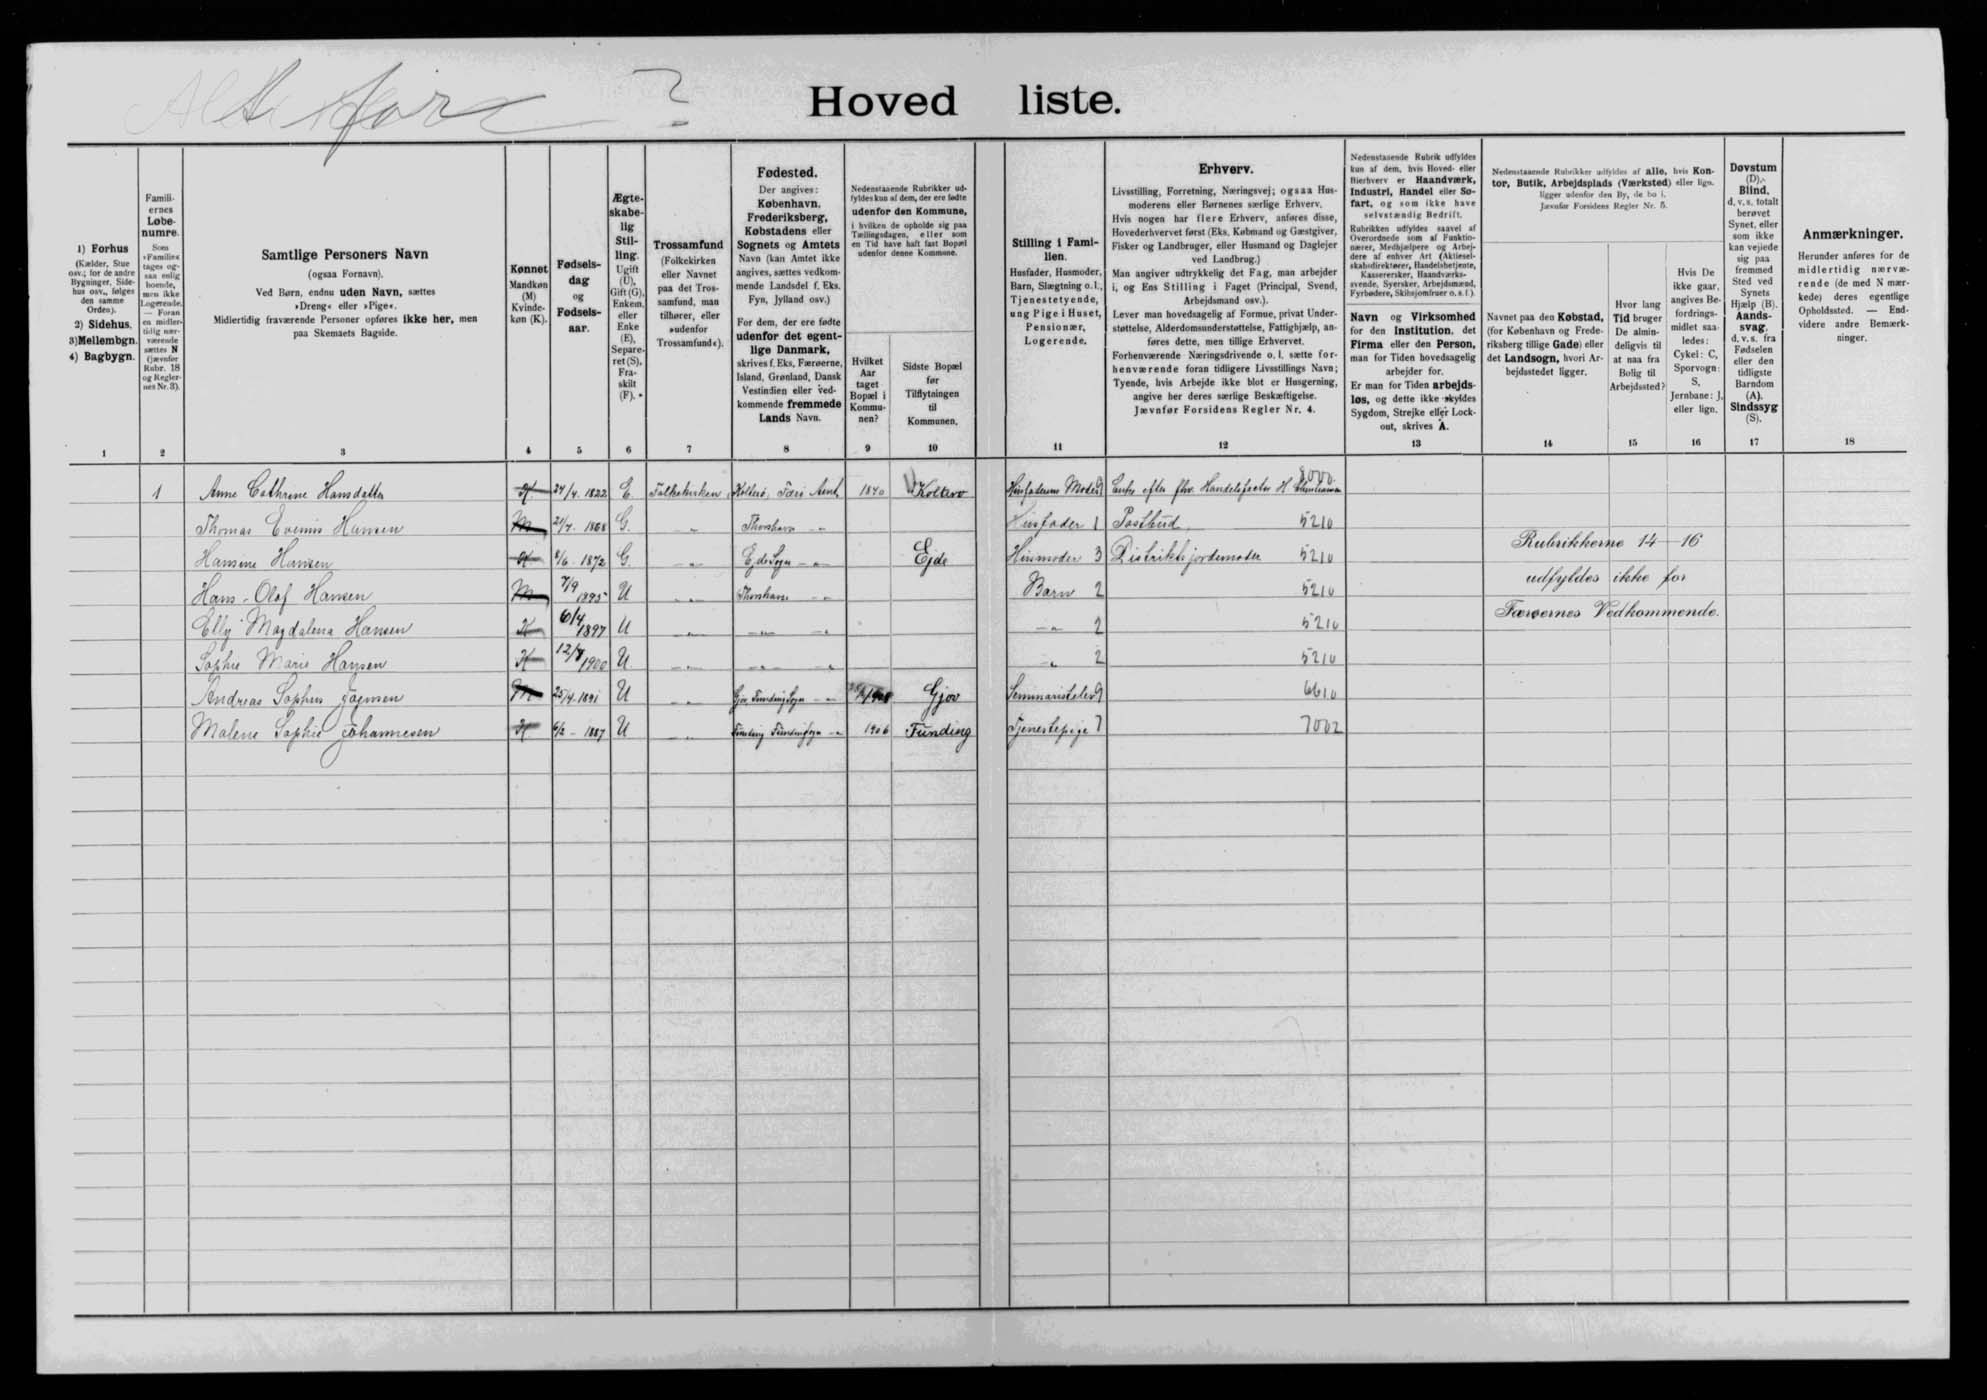 Hoved liste.
1) Forhus
(Kælder, Stue
osv.; for de andre
Bygninger, Side-
hus osv., følges
den samme
Orden).
2) Sidehus.
3) Mellembgn.
4) Bagbygn.
Famili-
ernes
Løbe-
numre.
Som
»Familie«
tages og-
saa enlig
boende,
men ikke
Logerende.
— Foran
en midler-
tidig nær-
værende
sættes N
(jævnfør
Rubr. 18
og Regler-
nes Nr. 3).
Samtlige Personers Navn
(ogsaa Fornavn).
Ved Børn, endnu uden Navn, sættes
»Dreng« eller »Pige«.
Midlertidig fraværende Personer opføres ikke her, men
paa Skemaets Bagside.
Kønnet
Mandkøn
(M)
Kvinde-
køn (K).
Fødsels-
dag
og
Fødsels-
aar.
Ægte-
skabe-
lig
Stil-
ling.
Ugift
(U),
Gift (G),
Enkem.
eller
Enke
(E),
Separe-
ret (S),
Fra-
skilt
(F).
Trossamfund
(Folkekirken
eller Navnet
paa det Tros-
samfund, man
tilhører, eller
»udenfor
Trossamfund«).
Fødested.
Der angives:
København,
Frederiksberg,
Købstadens eller
Sognets og Amtets
Navn (kan Amtet ikke
angives, sættes vedkom-
mende Landsdel f. Eks.
Fyn, Jylland osv.)
For dem, der ere fødte
udenfor det egent-
lige Danmark,
skrives f. Eks. Færøerne,
Island, Grønland, Dansk
Vestindien eller ved-
kommende fremmede
Lands Navn.
Nedenstaaende Rubrikker ud-
fyldes kun af dem, der ere fødte
udenfor den Kommune,
i hvilken de opholde sig paa
Tællingsdagen, eller som
en Tid have haft fast Bopæl
udenfor denne Kommune.
Hvilket
Aar
taget
Bopæl i
Kommu-
nen?
Sidste Bopæl
før
Tilflytningen
til
Kommunen.
Stilling i Fami-
lien.
Husfader, Husmoder,
Barn, Slægtning o. l.,
Tjenestetyende,
ung Pige i Huset,
Pensionær,
Logerende.
Erhverv.
Livsstilling, Forretning, Næringsvej; ogsaa Hus-
moderens eller Børnenes særlige Erhverv.
Hvis nogen har flere Erhverv, anføres disse,
Hovederhvervet først (Eks. Købmand og Gæstgiver,
Fisker og Landbruger, eller Husmand og Daglejer
ved Landbrug.)
Man angiver udtrykkelig det Fag, man arbejder
i, og Ens Stilling i Faget (Principal, Svend,
Arbejdsmand osv.).
Lever man hovedsagelig af Formue, privat Under-
støttelse, Alderdomsunderstøttelse, Fattighjælp, an-
føres dette, men tillige Erhvervet.
Forhenværende Næringsdrivende o. l. sætte for-
henværende foran tidligere Livsstillings Navn;
Tyende, hvis Arbejde ikke blot er Husgerning,
angive her deres særlige Beskæftigelse.
Jævnfør Forsidens Regler Nr. 4.
Nedenstaaende Rubrik udfyldes
kun af dem, hvis Hoved- eller
Bierhverv er Haandværk,
Industri, Handel eller Sø-
fart, og som ikke have
selvstændig Bedrift.
Rubrikken udfyldes saavel af
Overordnede som af Funktio-
nærer, Medhjælpere og Arbej-
dere af enhver Art (Aktiesel-
skabsdirektører, Handelsbetjente,
Kasserersker, Haandværks-
svende, Syersker, Arbejdsmænd,
Fyrbødere, Skibsjomfruer o. s. f.).
Navn og Virksomhed
for den Institution, det
Firma eller den Person,
man for Tiden hovedsagelig
arbejder for.
Er man for Tiden arbejds-
løs, og dette ikke skyldes
Sygdom, Strejke eller Lock-
out, skrives A.
Nedenstaaende Rubrikker udfyldes af alle, hvis Kon-
tor, Butik, Arbejdsplads (Værksted) eller lign.
ligger udenfor den By, de bo i.
Jævnfør Forsidens Regler Nr. 5.
Navnet paa den Købstad,
(for København og Frede-
riksberg tillige Gade) eller
det Landsogn, hvori Ar-
bejdsstedet ligger.
Hvor lang
Tid bruger
De almin-
deligvis til
at naa fra
Bolig til
Arbejdssted?
Hvis De
ikke gaar,
angives Be-
fordrings-
midlet saa-
ledes:
Cykel: C,
Sporvogn:
S,
Jernbane: J,
eller lign.
Døvstum
(D),
Blind,
d. v. s. totalt
berøvet
Synet, eller
som ikke
kan vejlede
sig paa
fremmed
Sted ved
Synets
Hjælp (B).
Aands-
svag,
d. v. s. fra
Fødselen
eller den
tidligste
Barndom
(A),
Sindssyg
(S).
Anmærkninger.
Herunder anføres for de
midlertidig nærvæ-
rende (de med N mær-
kede) deres egentlige
Opholdssted. — End-
videre andre Bemærk-
ninger.
1 2 3 4 5 6 7 8 9 10 11 12 13 14 15 16 17 18
1 Anne Cathrine Hansdatter K 24/4. 1822 E. Folkekirken Kolterø, Færø Amt 1840 Kolterø Husfaderens Moder 9 Enke efter fhv. Handelsfactor H 8000
Thomas Evenius Hansen M 21/7. 1868 G. " Thorshavn " Husfader 1 Postbud 5210
Hansine Hansen K 8/6 - 1872 G. " Ejde Sogn " Ejde Husmoder 3 Distriktsjordemoder 5210
Hans-Olof Hansen M 7/9 1895 U " Thorshavn " Barn 2 5210
Elly Magdalena Hansen K 6/4 1897 U " " " " 2 5210
Sophie Marie Hansen K 12/8 1900 U. " " " " 2 5210
Andreas Sophus Joensen M 25/4. 1891 U " Gjov, Funding Sogn " Gjov Seminarieelev 9 6610
Malene Sophie Johannesen K 6/2 - 1887 U " Funding Funding Sogn " 1906 Funding Tjenestepige 7 7002
Rubrikkerne 14-16
udfyldes ikke for
Færøernes Vedkommende.